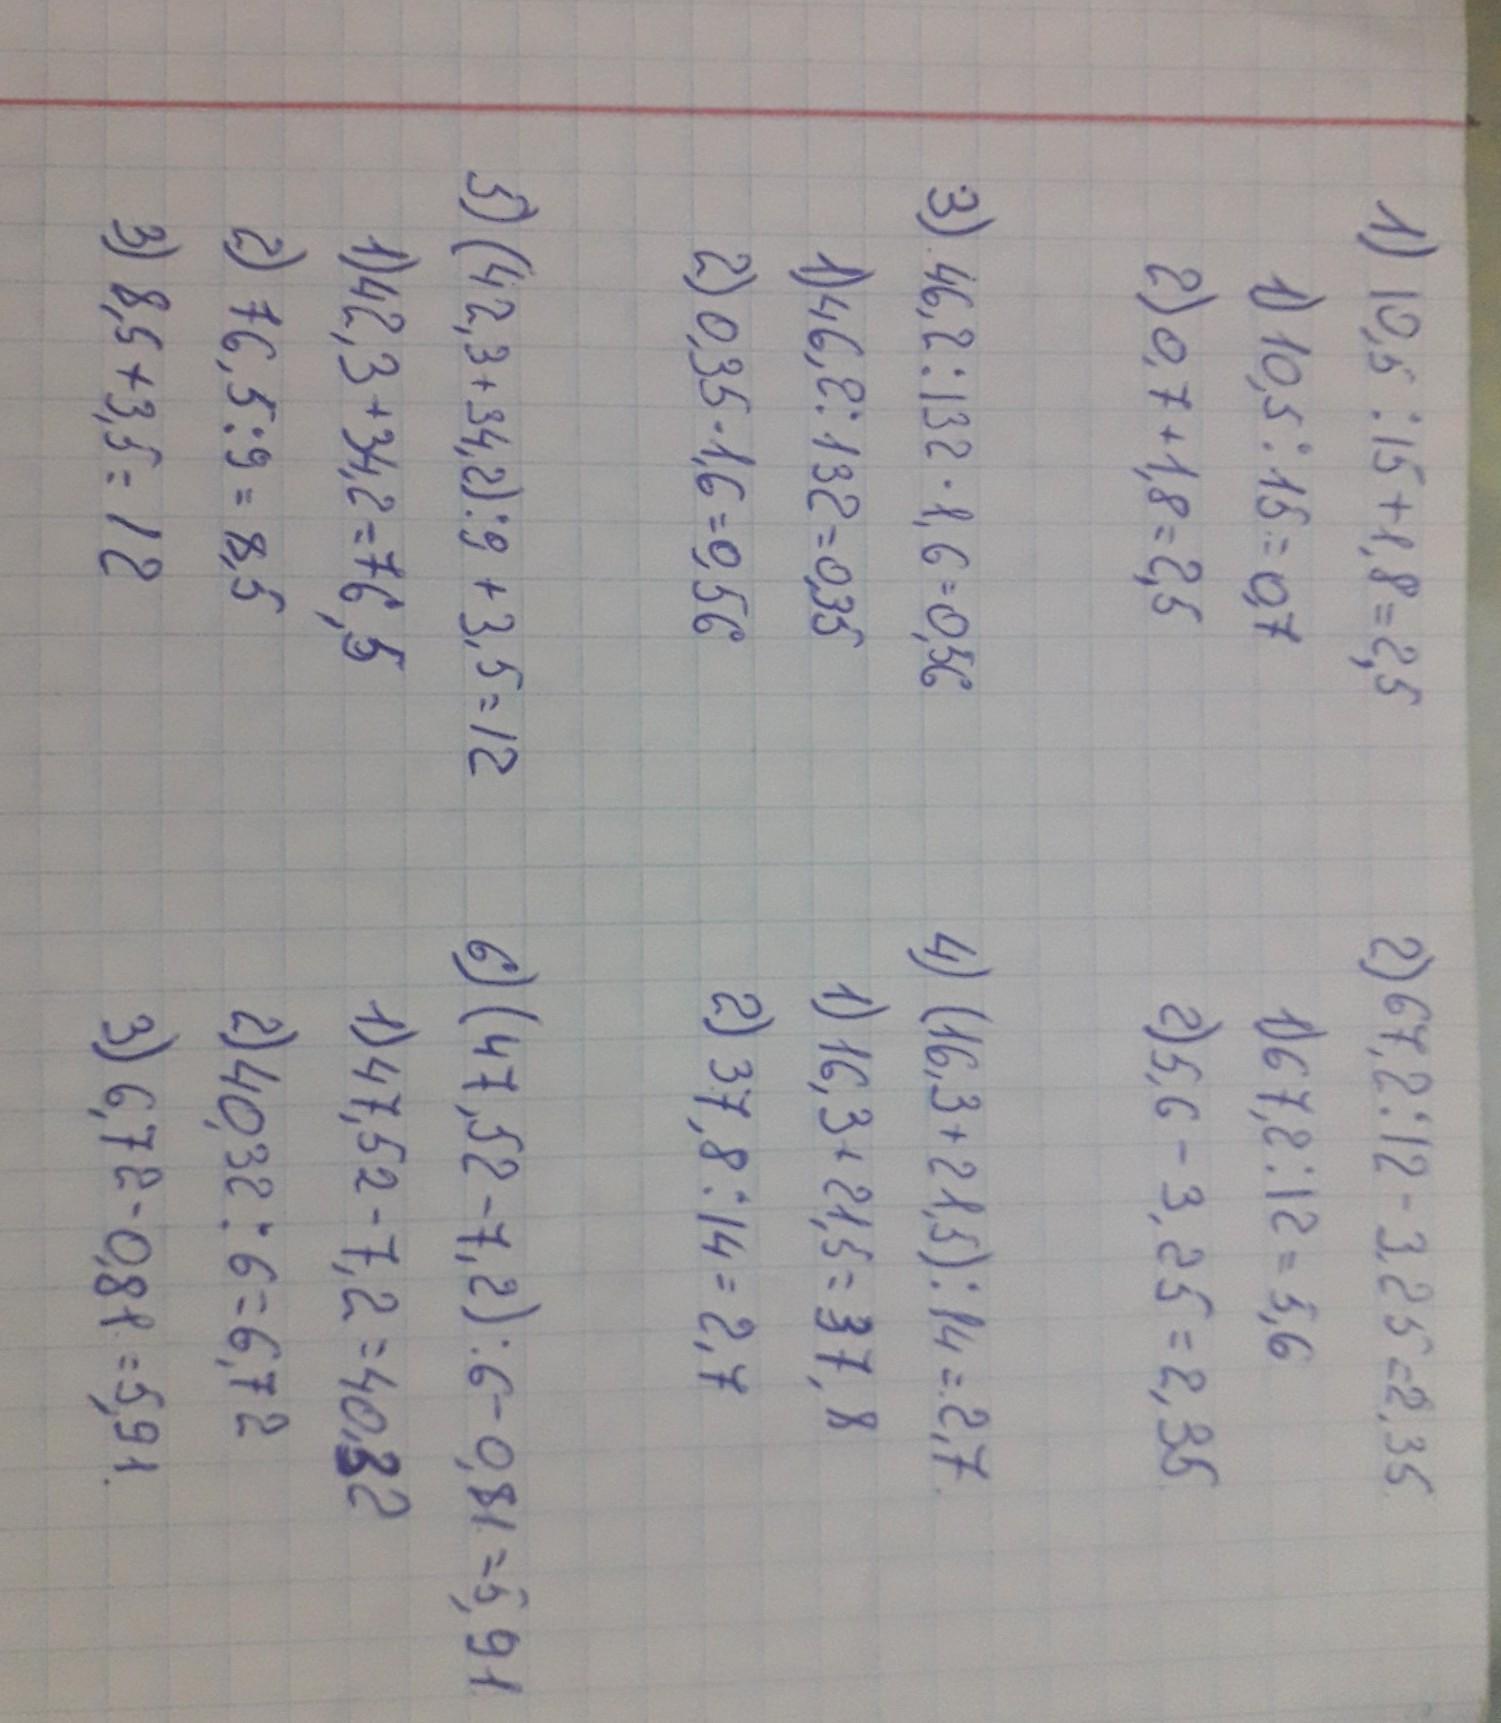 1) 10,5 : 15 + 1,8 = 2,5
1) 10,5 : 15 = 0,7
2) 0,7 + 1,8 = 2,5
2) 67,2 : 12 - 3,25 = 2,35
1) 67,2 : 12 = 5,6
2) 5,6 - 3,25 = 2,35
3) 46,2 : 132 · 1,6 = 0,56
1) 46,2 : 132 = 0,35
2) 0,35 · 1,6 = 0,56
4) (16,3 + 21,5) : 14 = 2,7
1) 16,3 + 21,5 = 37,8
2) 37,8 : 14 = 2,7
5) (42,3 + 34,2) : 9 + 3,5 = 12
1) 42,3 + 34,2 = 76,5
2) 76,5 : 9 = 8,5
3) 8,5 + 3,5 = 12
6) (47,52 - 7,2) : 6 - 0,81 = 5,91
1) 47,52 - 7,2 = 40,32
2) 40,32 : 6 = 6,72
3) 6,72 - 0,81 = 5,91